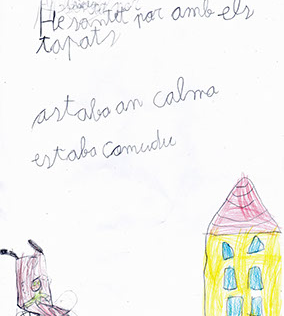 He santet por amb els
tapats
astaba an calma
estaba comudu